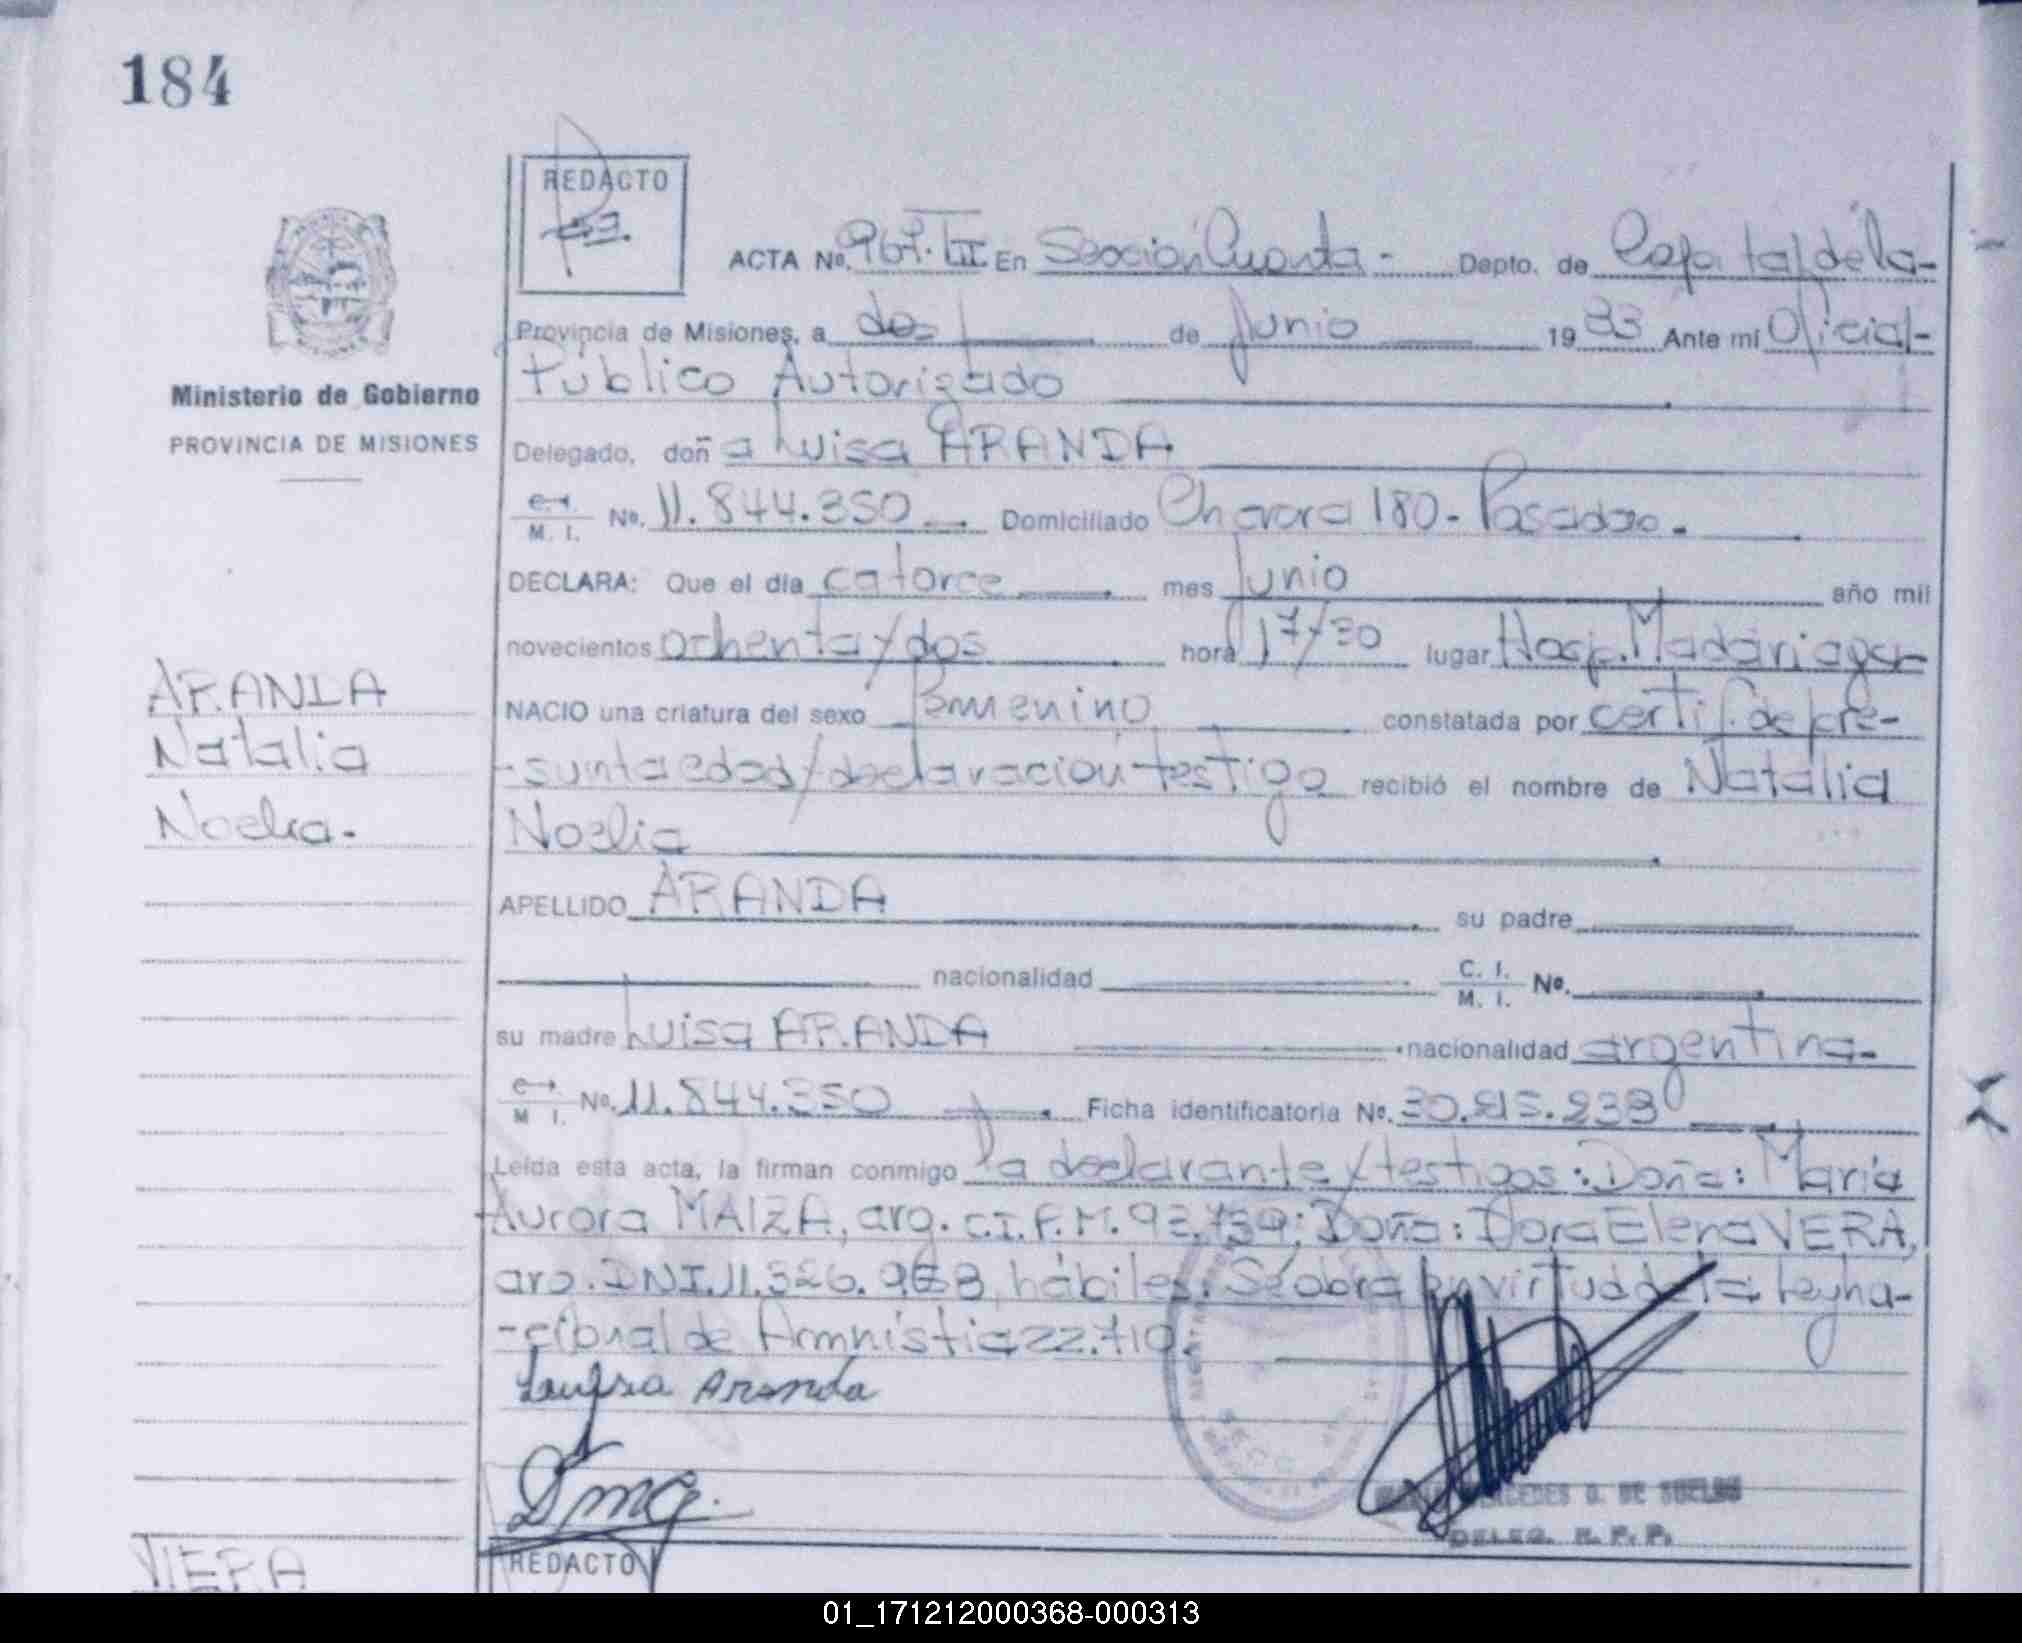 184
REDACTO
ACTA No. 967. III En Sección Cuarta - Depto. de Capital de la-
Provincia de Misiones, a dos de Junio 1983 Ante mi Oficial-
Público Autorizado
Ministerio de Gobierno
PROVINCIA DE MISIONES
Delegado, doña Luisa ARANDA
C.I. M. I. No. 11.844.350 Domiciliado Chavara 180 - Posadas.
DECLARA: Que el día catorce mes Junio año mil
novecientos ochenta y dos hora 17/30 lugar Hosp. Madariaga
NACIO una criatura del sexo Femenino constatada por certif. de pre-
-sunta edad y declaración testigo recibió el nombre de Natalia
Noelia
ARANDA
Natalia
Noelia.
APELLIDO ARANDA su padre
nacionalidad C. I. M. I. No.
su madre Luisa ARANDA nacionalidad argentina.
C.I. M I. No. 11.844.350 Ficha identificatoria No. 30.815.238
Leída esta acta, la firman conmigo la declarante y testigos: Doña: María
Aurora MAIZA, arg. C.I.P.M. 92.739; Doña: Dora Elena VERA,
arg. DNI. 11.326.968, hábiles. Se obra en virtud de la Ley na-
-cional de Amnistia 22.710.
Luisa Aranda
DELEG. R. P. P.
VIERA
REDACTO
01_171212000368-000313